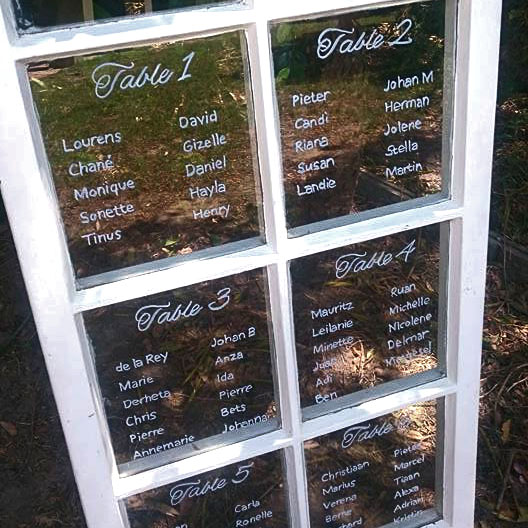 Table 1
Lourens
Chané
Monique
Sonette
Tinus
David
Gizelle
Daniel
Hayla
Henry
Table 2
Pieter
Candi
Riana
Susan
Landie
Johan M
Herman
Jolene
Stella
Martin
Table 3
de la Rey
Marie
Derheta
Chris
Pierre
Annemarie
Johan B
Anza
Ida
Pierre
Bets
Johannas
Table 4
Mauritz
Leilanie
Minette
Adi
Ben
Ruan
Michelle
Nicolene
Delmar
Table 5
Carla
Ronelle
Table
Christiaan
Marius
Verena
Pieter
Marcel
Tiaan
Alexa
Adrian